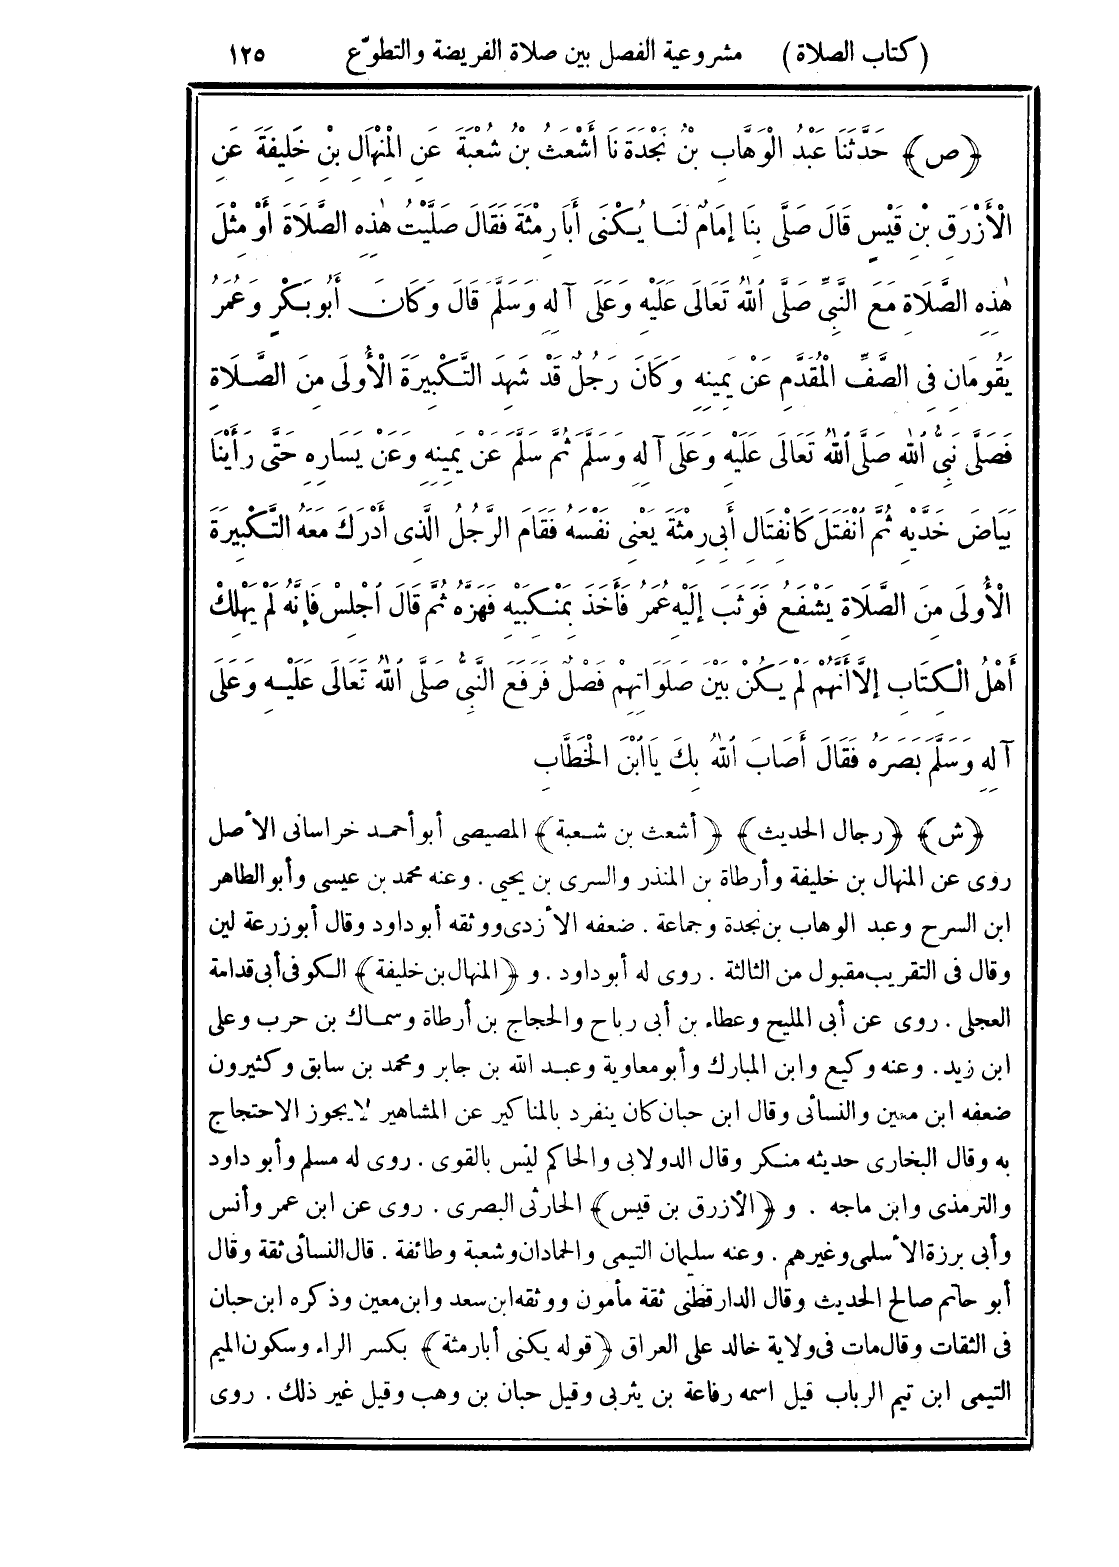 (كتاب الصلاة) مشروعية الفصل بين صلاة الفريضة والتطوّع ١٢٥
﴿ص﴾ حَدَّثَنَا عَبْدُ الْوَهَّابِ بْنُ نَجْدَةَ نَا أَشْعَثُ بْنُ شُعْبَةَ عَنِ الْمِنْهَالِ بْنِ خَلِيفَةَ عَنِ
الْأَزْرَقِ بْنِ قَيْسٍ قَالَ صَلَّى بِنَا إِمَامٌ لَنَا يُكْنَى أَبَا رِمْثَةَ فَقَالَ صَلَّيْتُ هٰذِهِ الصَّلَاةَ أَوْ مِثْلَ
هٰذِهِ الصَّلَاةِ مَعَ النَّبِيِّ صَلَّى اللهُ تَعَالَى عَلَيْهِ وَعَلَى آلِهِ وَسَلَّمَ قَالَ وَكَانَ أَبُو بَكْرٍ وَعُمَرُ
يَقُومَانِ فِى الصَّفِّ الْمُقَدَّمِ عَنْ يَمِينِهِ وَكَانَ رَجُلٌ قَدْ شَهِدَ التَّكْبِيرَةَ الْأُولَى مِنَ الصَّلَاةِ
فَصَلَّى نَبِىُّ اللهِ صَلَّى اللهُ تَعَالَى عَلَيْهِ وَعَلَى آلِهِ وَسَلَّمَ ثُمَّ سَلَّمَ عَنْ يَمِينِهِ وَعَنْ يَسَارِهِ حَتَّى رَأَيْنَا
بَيَاضَ خَدَّيْهِ ثُمَّ انْفَتَلَ كَانْفِتَالِ أَبِى رِمْثَةَ يَعْنِى نَفْسَهُ فَقَامَ الرَّجُلُ الَّذِى أَدْرَكَ مَعَهُ التَّكْبِيرَةَ
الْأُولَى مِنَ الصَّلَاةِ يَشْفَعُ فَوَثَبَ إِلَيْهِ عُمَرُ فَأَخَذَ بِمَنْكِبَيْهِ فَهَزَّهُ ثُمَّ قَالَ اجْلِسْ فَإِنَّهُ لَمْ يَهْلِكْ
أَهْلُ الْكِتَابِ إِلَّا أَنَّهُمْ لَمْ يَكُنْ بَيْنَ صَلَوَاتِهِمْ فَصْلٌ فَرَفَعَ النَّبِىُّ صَلَّى اللهُ تَعَالَى عَلَيْهِ وَعَلَى
آلِهِ وَسَلَّمَ بَصَرَهُ فَقَالَ أَصَابَ اللهُ بِكَ يَا ابْنَ الْخَطَّابِ
﴿ش﴾ ﴿رجال الحديث﴾ ﴿أشعث بن شعبة﴾ المصيصى أبو أحمد خراسانى الأصل
روى عن المنهال بن خليفة وأرطاة بن المنذر والسرى بن يحيى . وعنه محمد بن عيسى وأبو الطاهر
ابن السرح وعبد الوهاب بن نجدة وجماعة . ضعفه الأزدى ووثقه أبو داود وقال أبو زرعة لين
وقال فى التقريب مقبول من الثالثة . روى له أبو داود . و ﴿المنهال بن خليفة﴾ الكوفى أبى قدامة
العجلى . روى عن أبى المليح وعطاء بن أبى رباح والحجاج بن أرطاة وسماك بن حرب وعلى
ابن زيد . وعنه وكيع وابن المبارك وأبو معاوية وعبد الله بن جابر ومحمد بن سابق وكثيرون
ضعفه ابن معين والنسائى وقال ابن حبان كان ينفرد بالمناكير عن المشاهير لا يجوز الاحتجاج
به وقال البخارى حديثه منكر وقال الدولابى والحاكم ليس بالقوى . روى له مسلم وأبو داود
والترمذى وابن ماجه . و ﴿الأزرق بن قيس﴾ الحارثى البصرى . روى عن ابن عمر وأنس
وأبى برزة الأسلمى وغيرهم . وعنه سليمان التيمى والحمادان وشعبة وطائفة . قال النسائى ثقة وقال
أبو حاتم صالح الحديث وقال الدارقطنى ثقة مأمون ووثقه ابن سعد وابن معين وذكره ابن حبان
فى الثقات وقال مات فى ولاية خالد على العراق ﴿قوله يكنى أبا رمثة﴾ بكسر الراء وسكون الميم
التيمى ابن تيم الرباب قيل اسمه رفاعة بن يثربى وقيل حبان بن وهب وقيل غير ذلك . روى